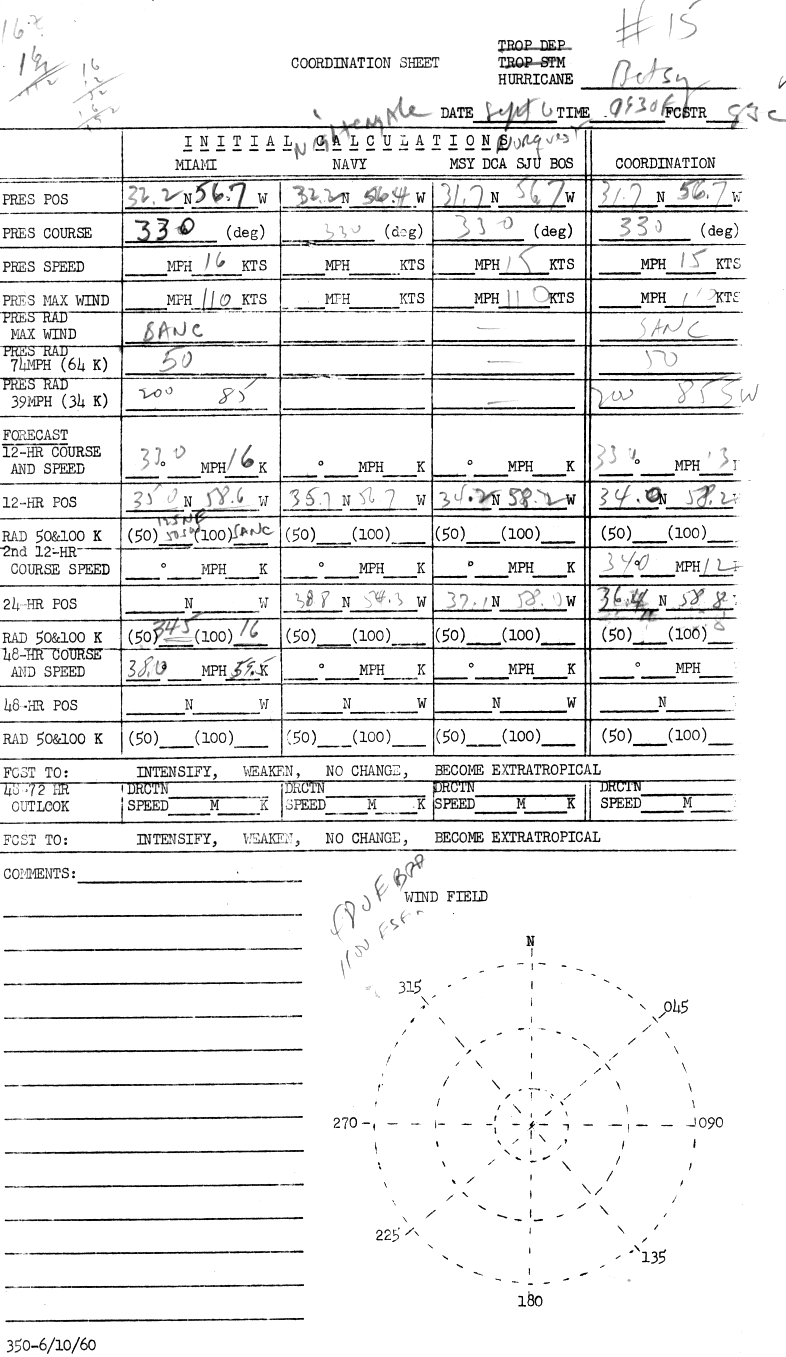 # 15
COORDINATION SHEET
TROP DEP
TROP STM
HURRICANE Betsy
DATE Sept 6 TIME 0930E FCSTR
INITIAL CALCULATIONS
MIAMI NAVY MSY DCA SJU BOS COORDINATION
PRES POS 32.2 N 56.7 W 32.2 N 56.4 W 31.7 N 56.7 W 31.7 N 56.7 W
PRES COURSE 330 (deg) 330 (deg) 330 (deg) 330 (deg)
PRES SPEED MPH 16 KTS MPH KTS MPH 15 KTS MPH 15 KTS
PRES MAX WIND MPH 110 KTS MPH KTS MPH 110 KTS MPH 110 KTS
PRES RAD
MAX WIND SANC — SANC
PRES RAD
74MPH (64 K) 50 — 50
PRES RAD
39MPH (34 K) 200 85 — 200 85SW
FORECAST
12-HR COURSE
AND SPEED 330° MPH 16 K ° MPH K ° MPH K 330 MPH 13
12-HR POS 35.0 N 58.6 W 35.7 N 56.7 W 34.2 N 58.2 W 34.0 N 58.2
RAD 50&100 K (50) (100) SANC (50) (100) (50) (100) (50) (100)
2nd 12-HR
COURSE SPEED ° MPH K ° MPH K ° MPH K 340° MPH 12
24-HR POS N W 38.8 N 54.3 W 37.1 N 58.0 W 36.4 N 58.8
RAD 50&100 K (50) 345 (100) 16 (50) (100) (50) (100) (50) (100)
48-HR COURSE
AND SPEED 38.0 MPH 59.5 K ° MPH K ° MPH K ° MPH
48-HR POS N W N W N W N
RAD 50&100 K (50) (100) (50) (100) (50) (100) (50) (100)
FCST TO: INTENSIFY, WEAKEN, NO CHANGE, BECOME EXTRATROPICAL
48-72 HR DRCTN DRCTN DRCTN DRCTN
OUTLOOK SPEED M K SPEED M K SPEED M K SPEED M
FCST TO: INTENSIFY, WEAKEN, NO CHANGE, BECOME EXTRATROPICAL
COMMENTS:
WIND FIELD
N
315
045
270
090
225
135
180
350-6/10/60